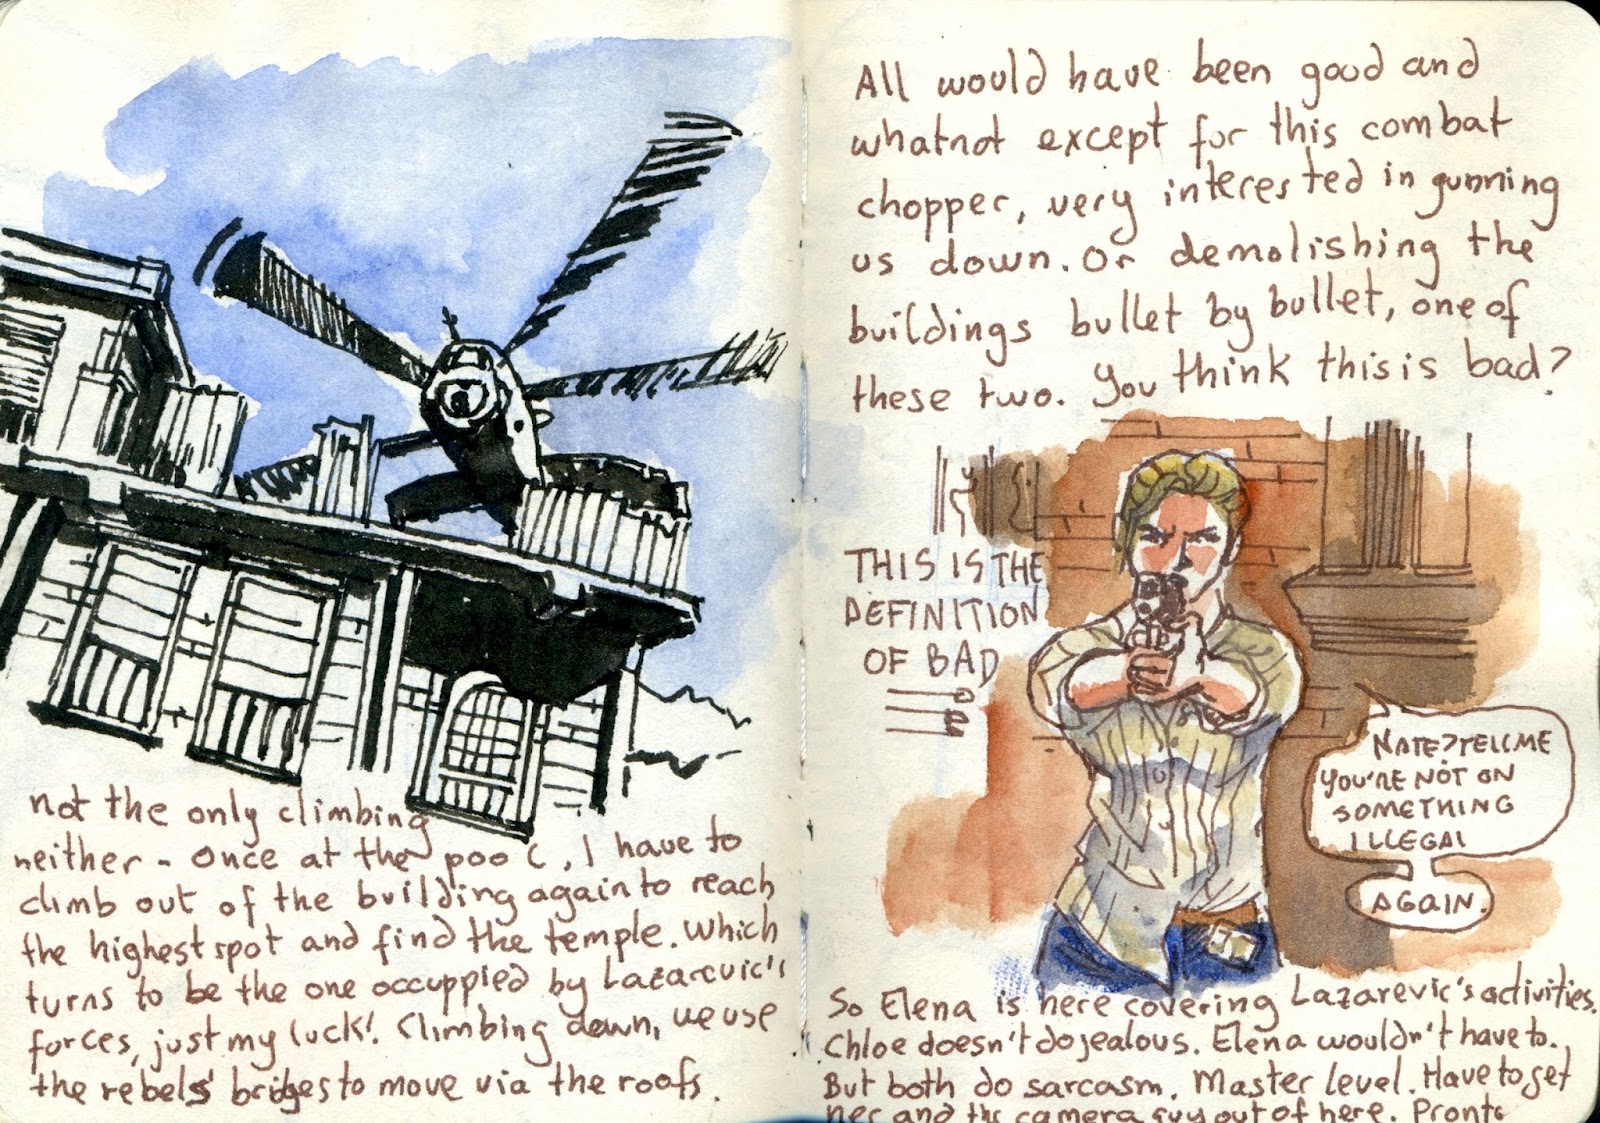 not the only climbing
neither - Once at the pool, I have to
climb out of the building again to reach
the highest spot and find the temple. Which
turns to be the one occuppied by Lazarevic's
forces, just my luck! Climbing down, we use
the rebels' bridges to move via the roofs.
All would have been good and
whatnot except for this combat
chopper, very interested in gunning
us down. Or demolishing the
buildings bullet by bullet, one of
these two. You think this is bad?
THIS IS THE
DEFINITION
OF BAD
NATE? TELL ME
YOU'RE NOT ON
SOMETHING
ILLEGAL
AGAIN.
So Elena is here covering Lazarevic's activities.
Chloe doesn't do jealous. Elena wouldn't have to.
But both do sarcasm. Master level. Have to get
her and the camera guy out of here. Pronto